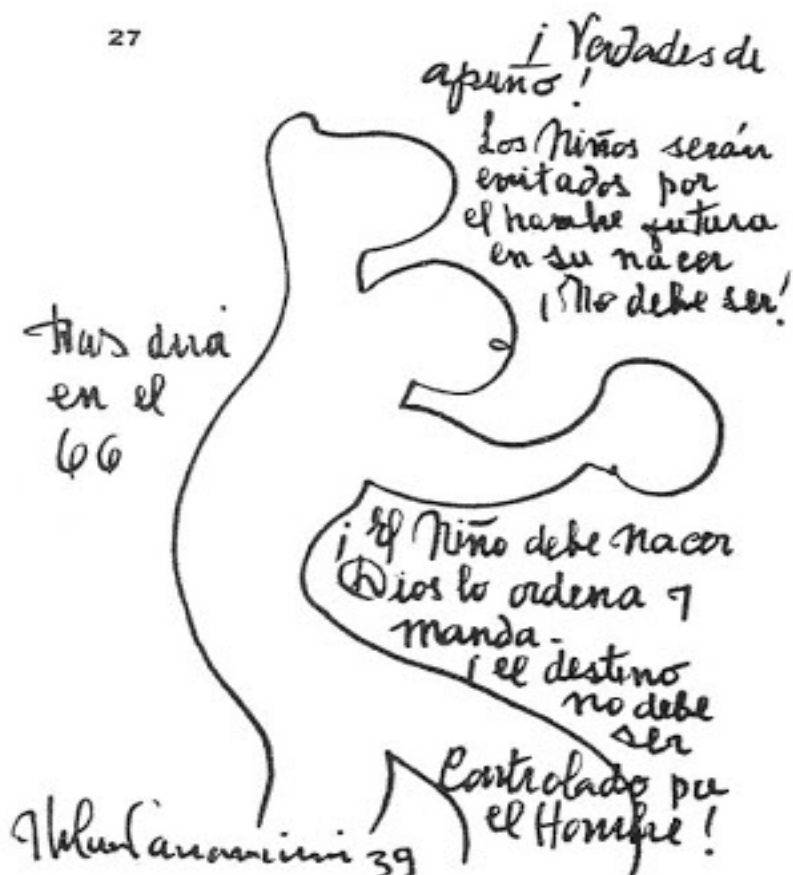 27
¡ Verdades de
apuño !
Los Niños serán
evitados por
el hombre futura
en su nacer
¡ No debe ser!
en el
66
¡ El Niño debe Nacer
Dios lo ordena y
manda.
¡ el destino
no debe
ser
Controlado por
el Hombre !
39